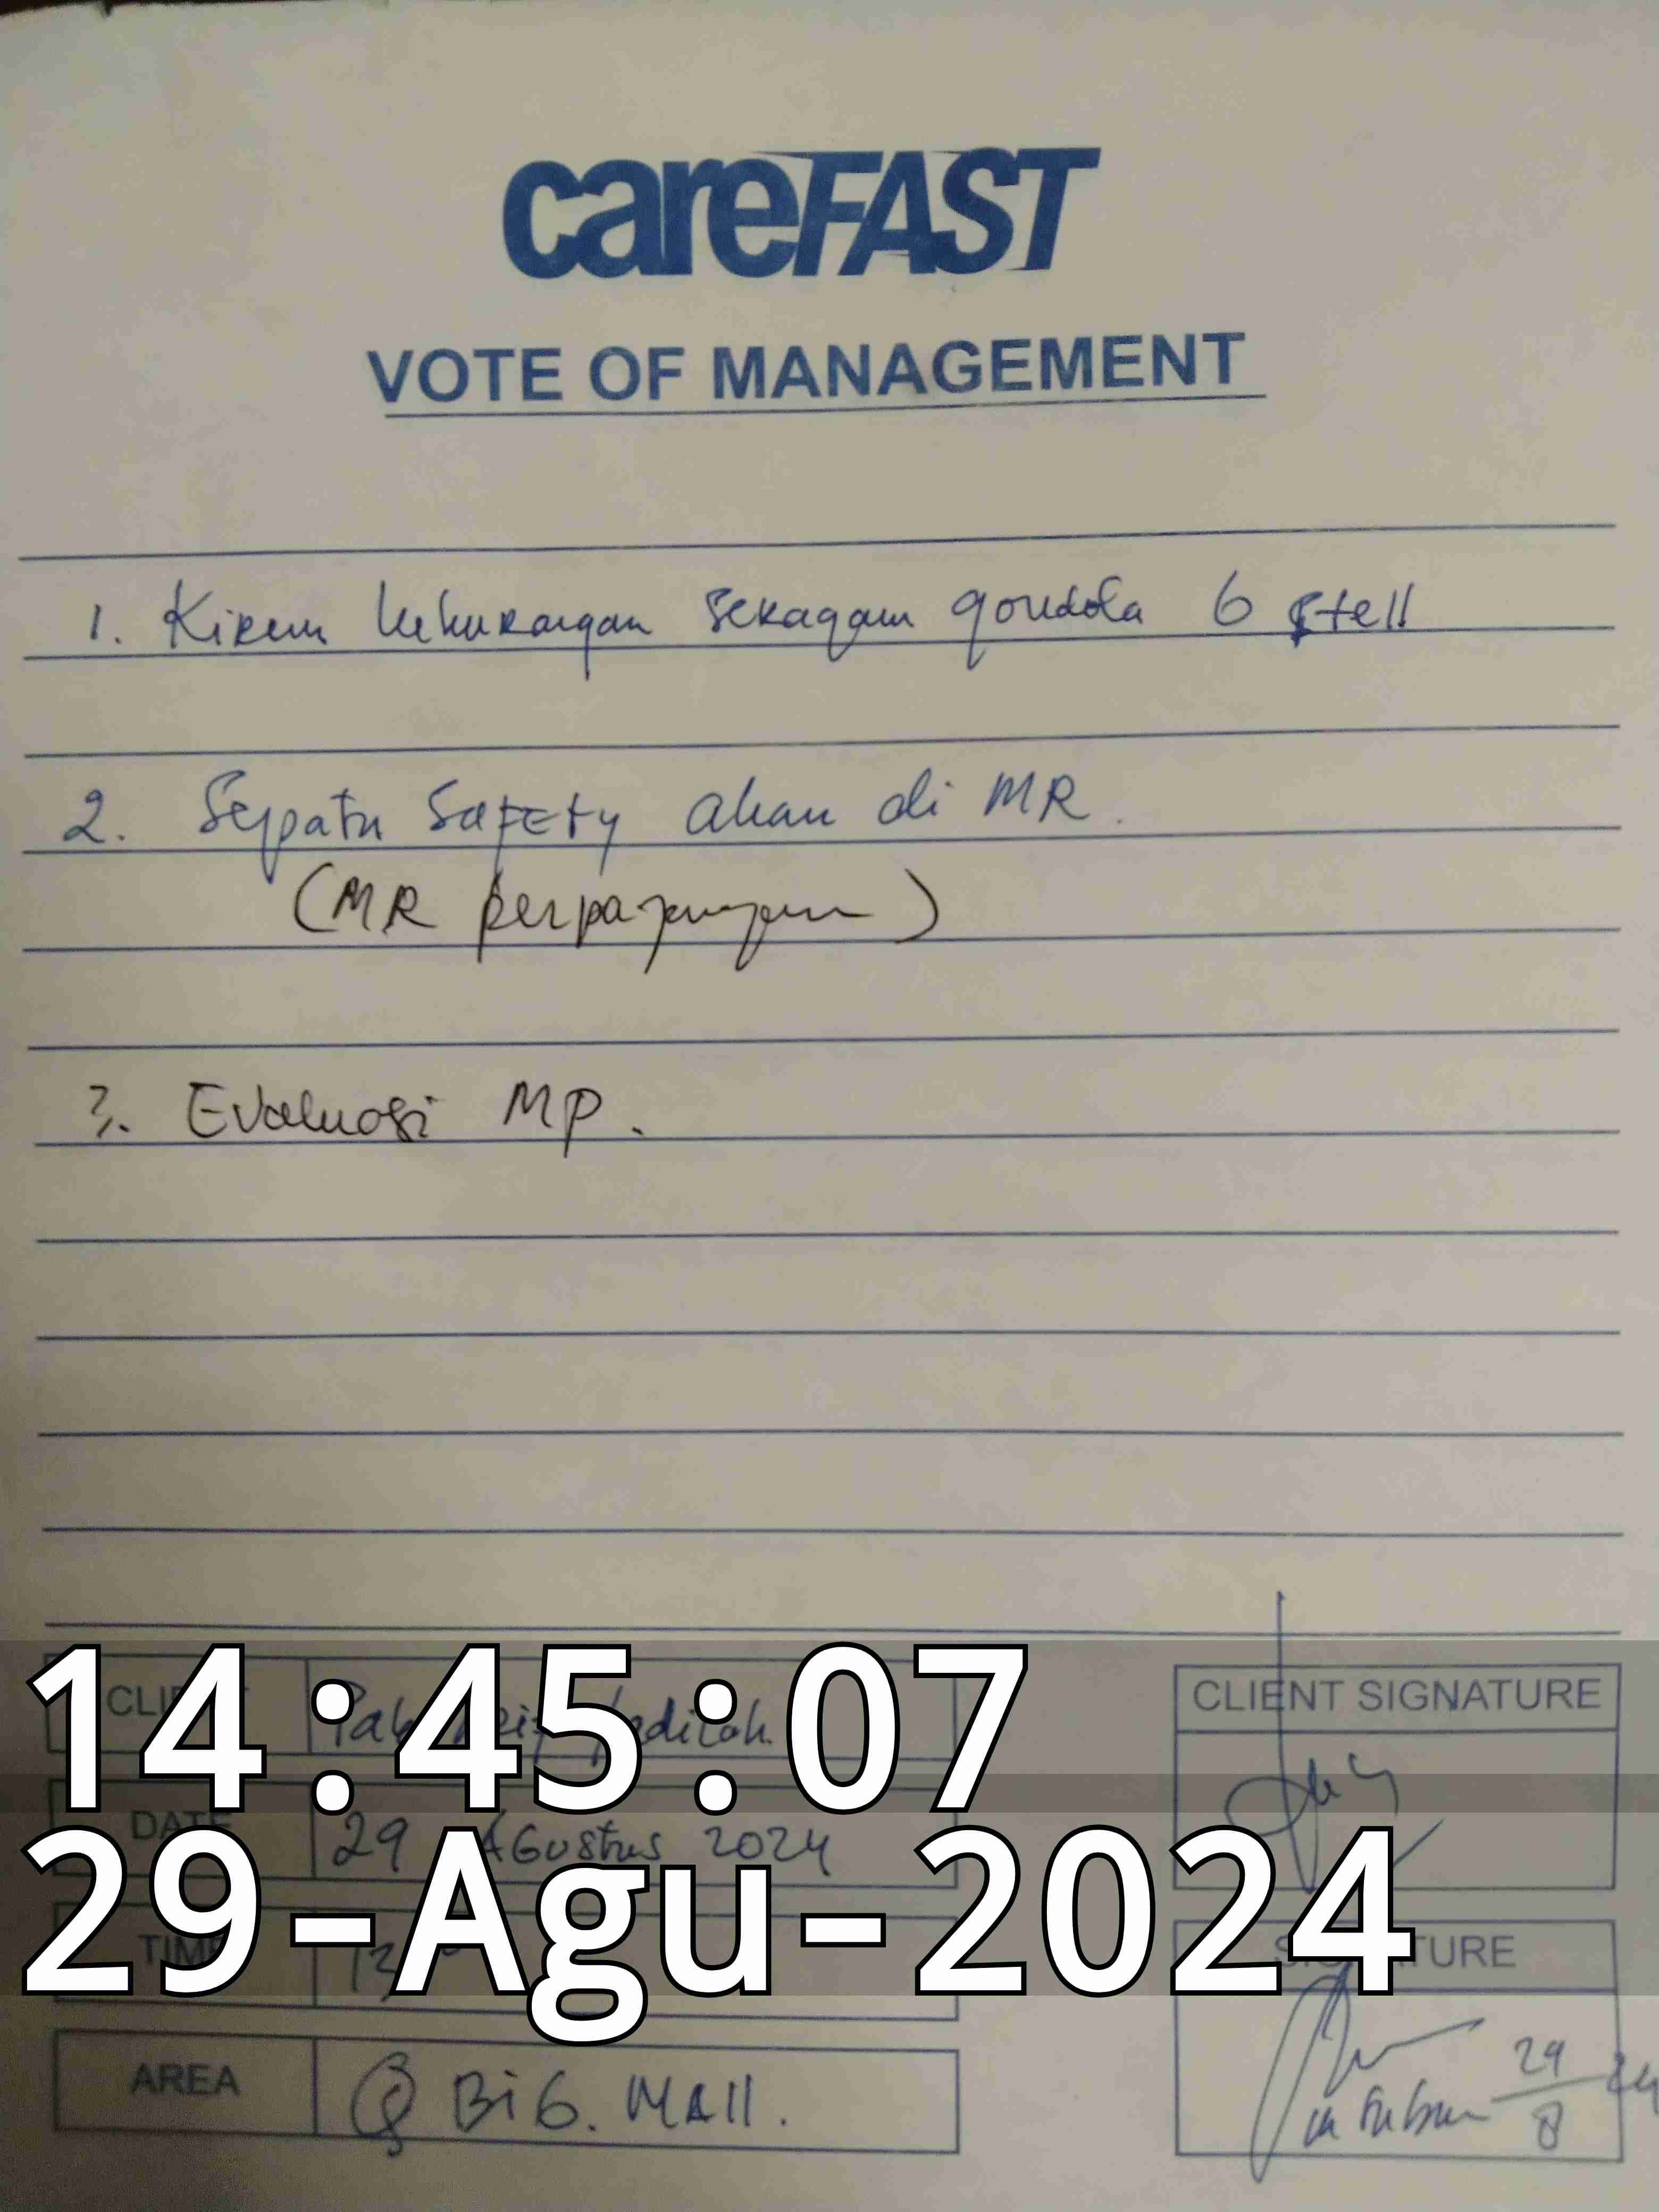 careFAST
VOTE OF MANAGEMENT
1. Kirem kekurangan seragam gondola 6 stell
2. Sepatu Safety akan di MR.
(MR perpanjangan)
3. Evaluasi MP.
CLIENT Pak
DATE 29 Agustus 2024
TIME 13
AREA @ BiG. MAll.
CLIENT SIGNATURE
SIGNATURE
29/8 24
14:45:07
29-Agu-2024